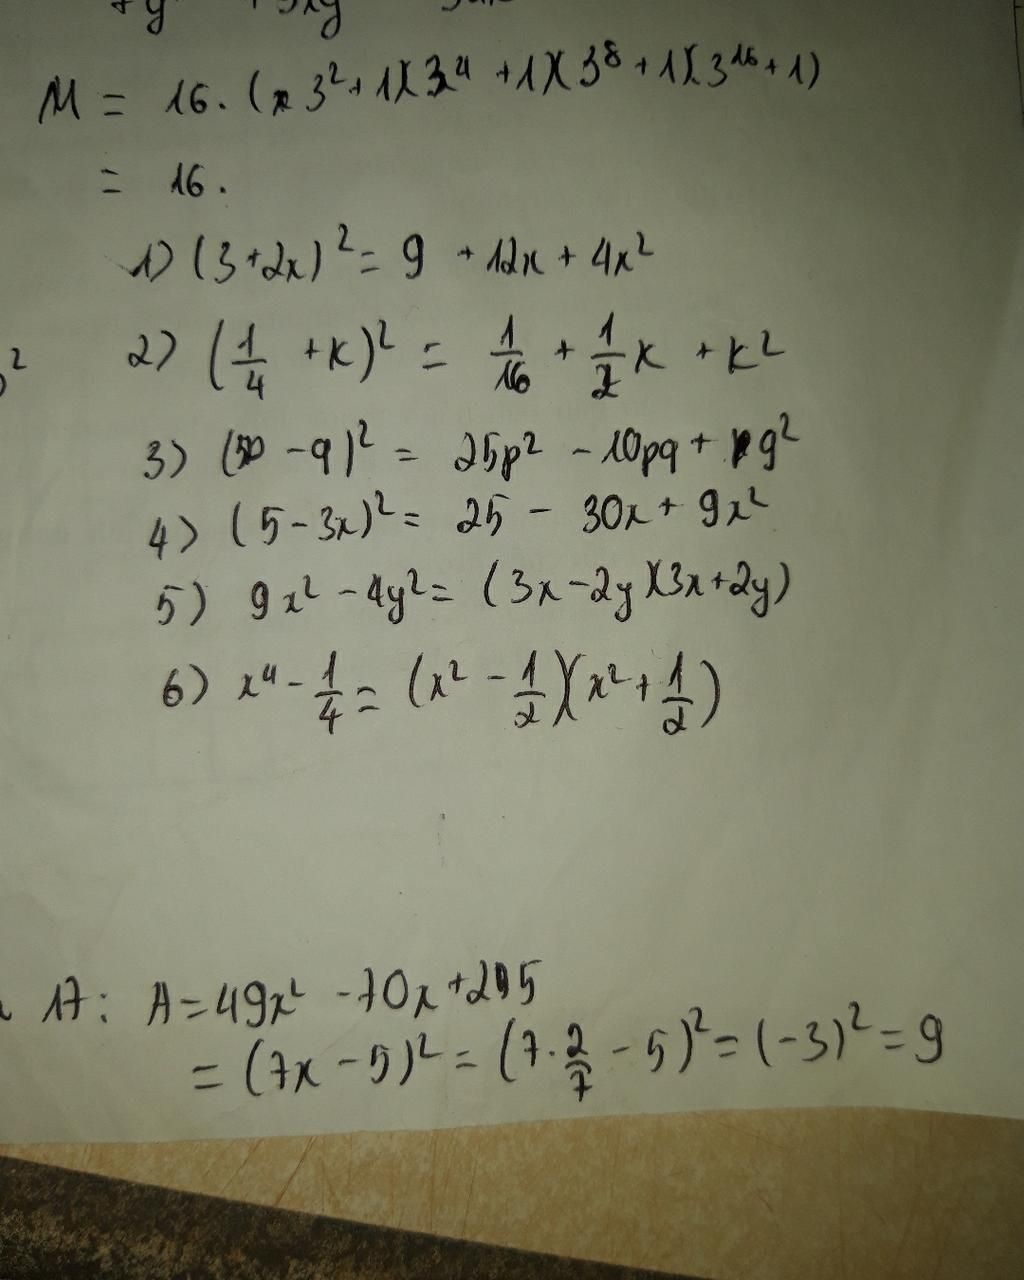 M = 16. (3² + 1)(3⁴ + 1)(3⁸ + 1)(3¹⁶ + 1)
= 16.
1) (3 + 2x)² = 9 + 12x + 4x²
2) (1/4 + k)² = 1/16 + 1/2 k + k²
3) (5p - q)² = 25p² - 10pq + q²
4) (5 - 3x)² = 25 - 30x + 9x²
5) 9x² - 4y² = (3x - 2y)(3x + 2y)
6) x⁴ - 1/4 = (x² - 1/2)(x² + 1/2)
17: A = 49x² - 70x + 25
= (7x - 5)² = (7. 2/7 - 5)² = (-3)² = 9